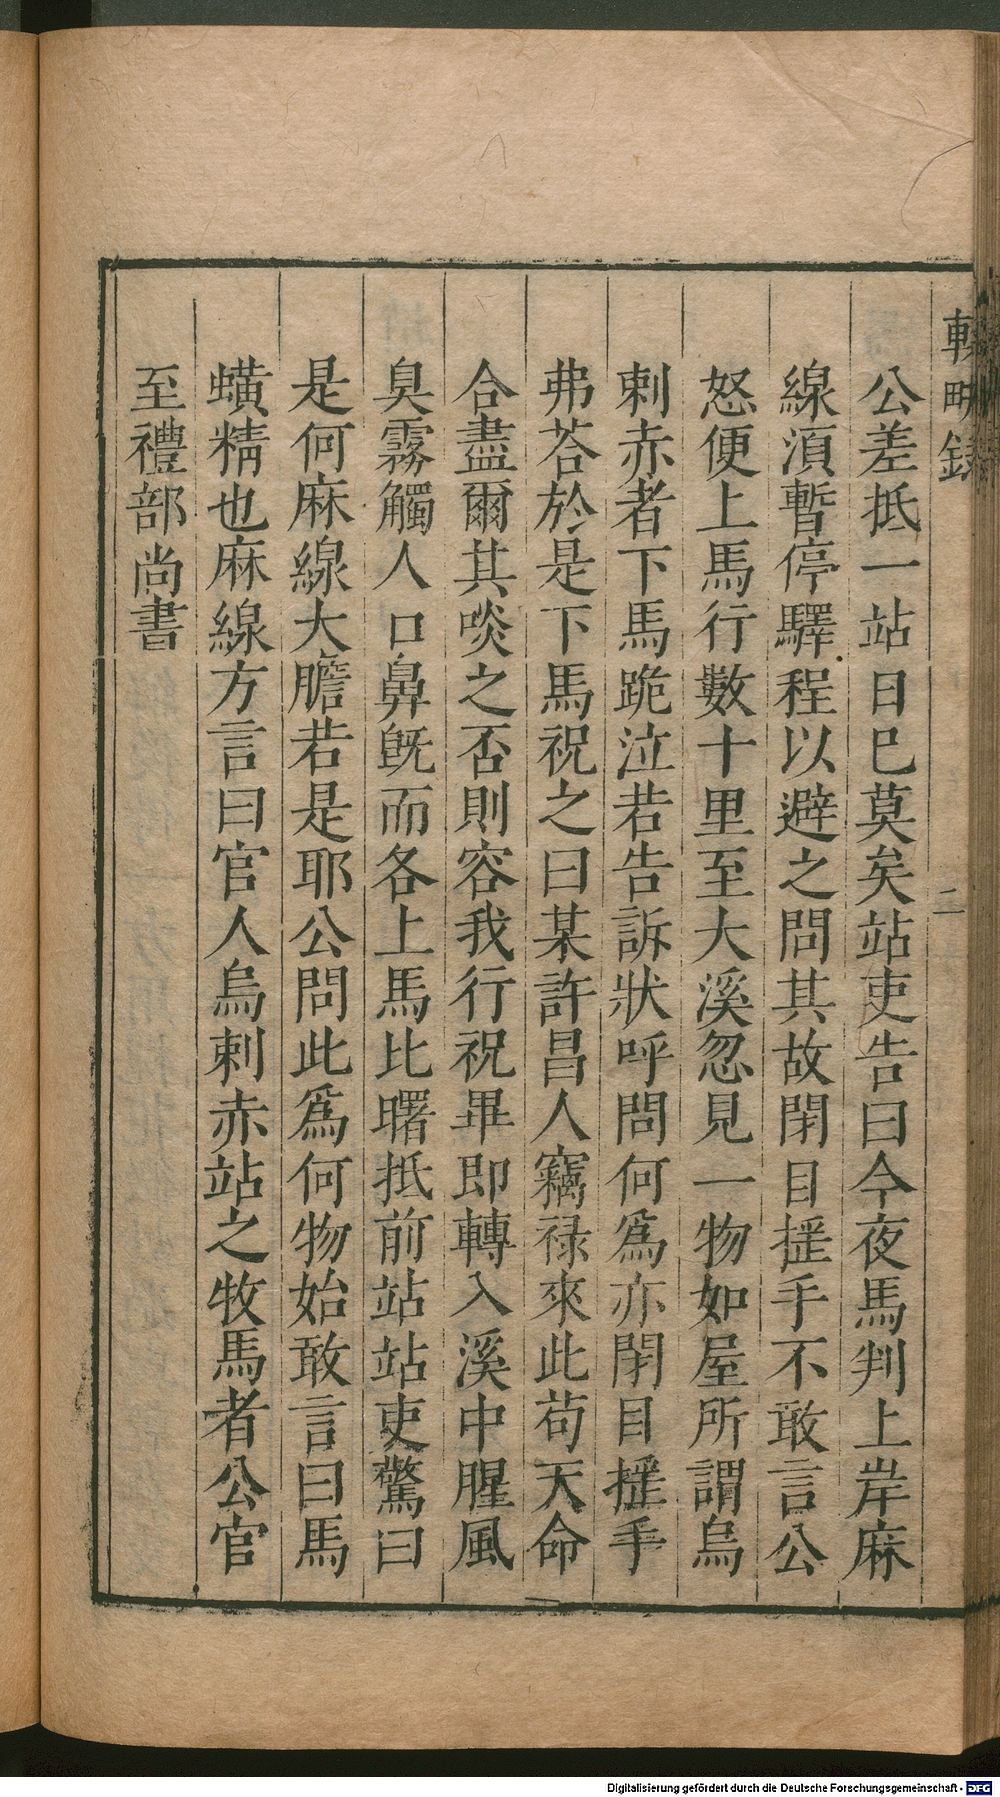 輟畊錄
二
公差抵一站日已莫矣站吏告曰今夜馬判上岸麻
線湏暫停驛程以避之問其故閉目揺手不敢言公
怒便上馬行數十里至大溪忽見一物如屋所謂烏
剌赤者下馬跪泣若告訴狀呼問何爲亦閉目揺手
弗荅於是下馬祝之曰某許昌人竊禄來此苟天命
合盡爾其啖之否則容我行祝畢即轉入溪中腥風
臭霧觸人口鼻旣而各上馬比曙抵前站站吏驚曰
是何麻線大膽若是耶公問此爲何物始敢言曰馬
蟥精也麻線方言曰官人烏剌赤站之牧馬者公官
至禮部尚書
Digitalisierung gefördert durch die Deutsche Forschungsgemeinschaft - DFG